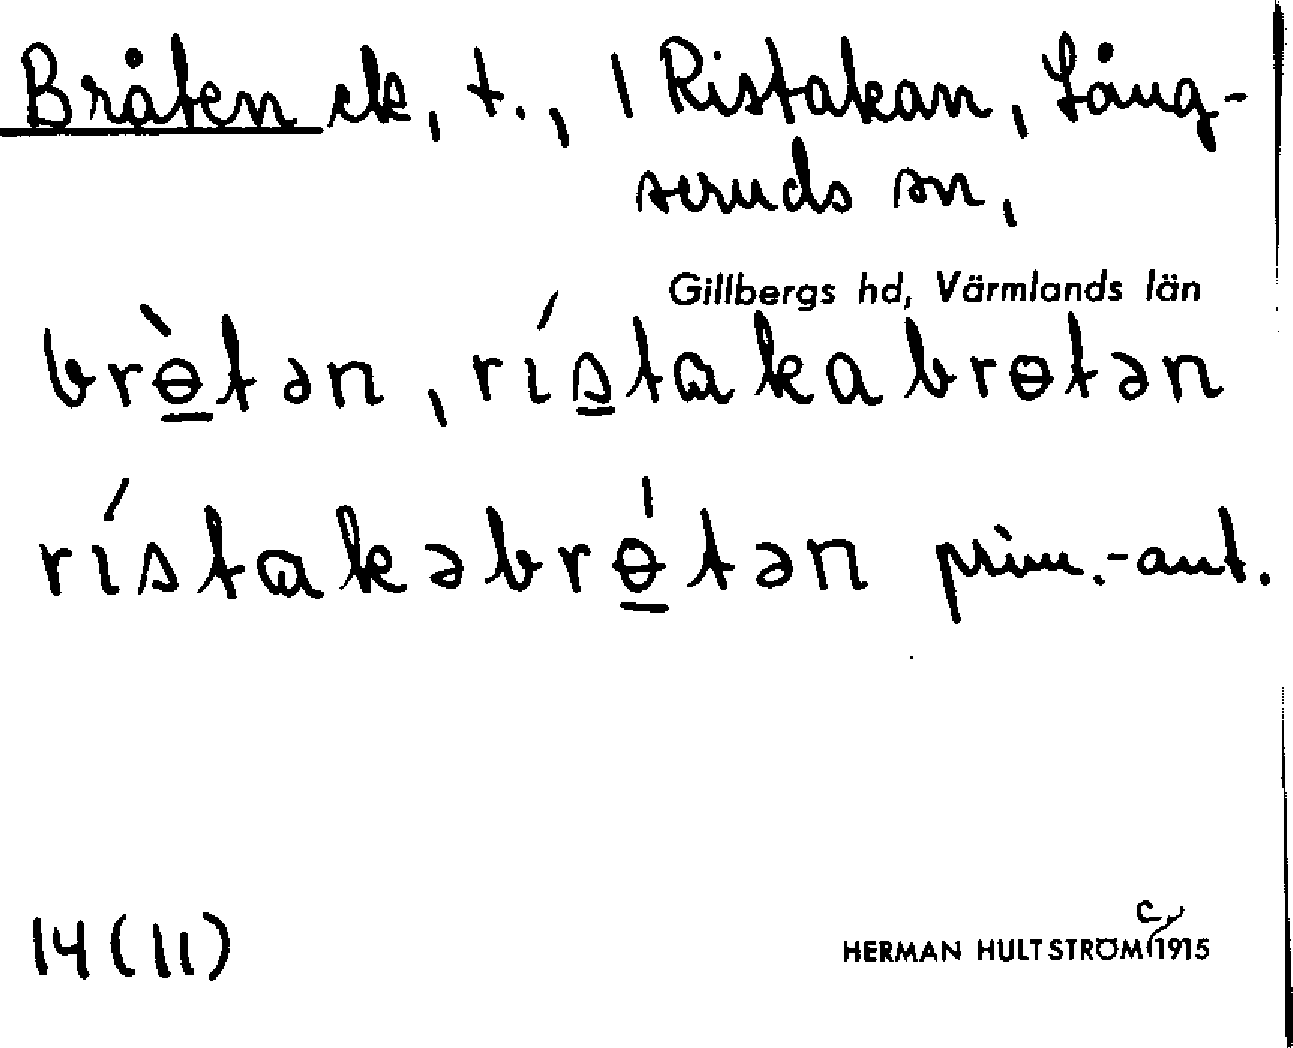 Bråten ek, t., i Ristakan, Lång-
seruds sn,
Gillbergs hd, Värmlands län
brɵ̀tən, rístakabrɵtən
rístakəbrɵ́tən prim.-ant.
14 (11)
HERMAN HULTSTRÖM c 1915